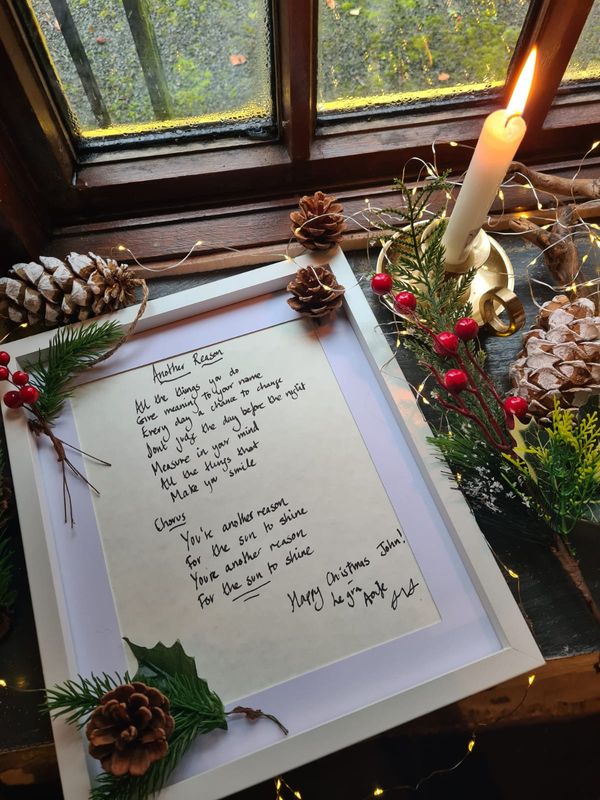 Another Reason
All the things you do
Give meaning to your name
Every day a chance to change
Dont judge the day before the night
Measure in your mind
All the things that
Make you smile
Chorus
You're another reason
For the sun to shine
Youre another reason
For the sun to shine
Happy Christmas John!